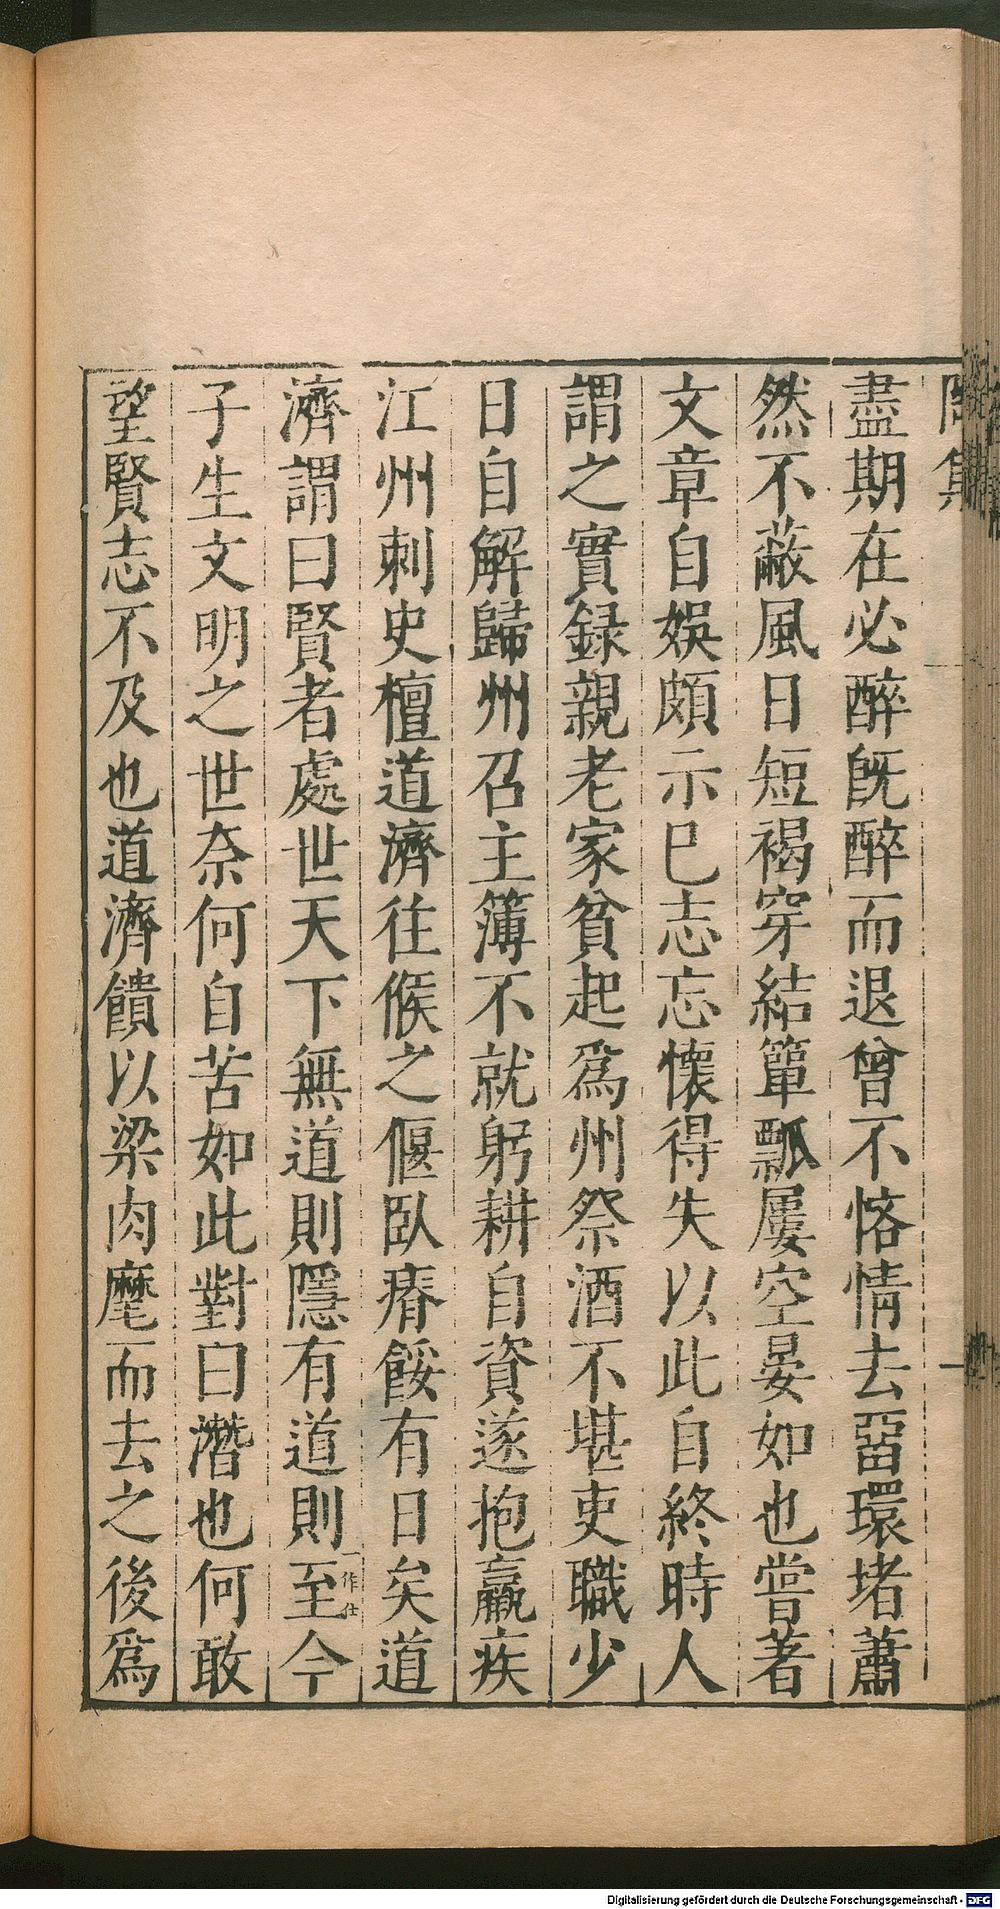 盡期在必醉旣醉而退曾不悋情去留環堵蕭
然不蔽風日短褐穿結簞瓢屢空晏如也嘗著
文章自娛頗示巳志忘懷得失以此自終時人
謂之實錄親老家貧起爲州祭酒不堪吏職少
日自解歸州召主簿不就躬耕自資遂抱羸疾
江州刺史檀道濟往候之偃臥瘠餒有日矣道
濟謂曰賢者處世天下無道則隱有道則至一作仕今
子生文明之世奈何自苦如此對曰潛也何敢
望賢志不及也道濟饋以梁肉麾而去之後爲
Digitalisierung gefördert durch die Deutsche Forschungsgemeinschaft - DFG